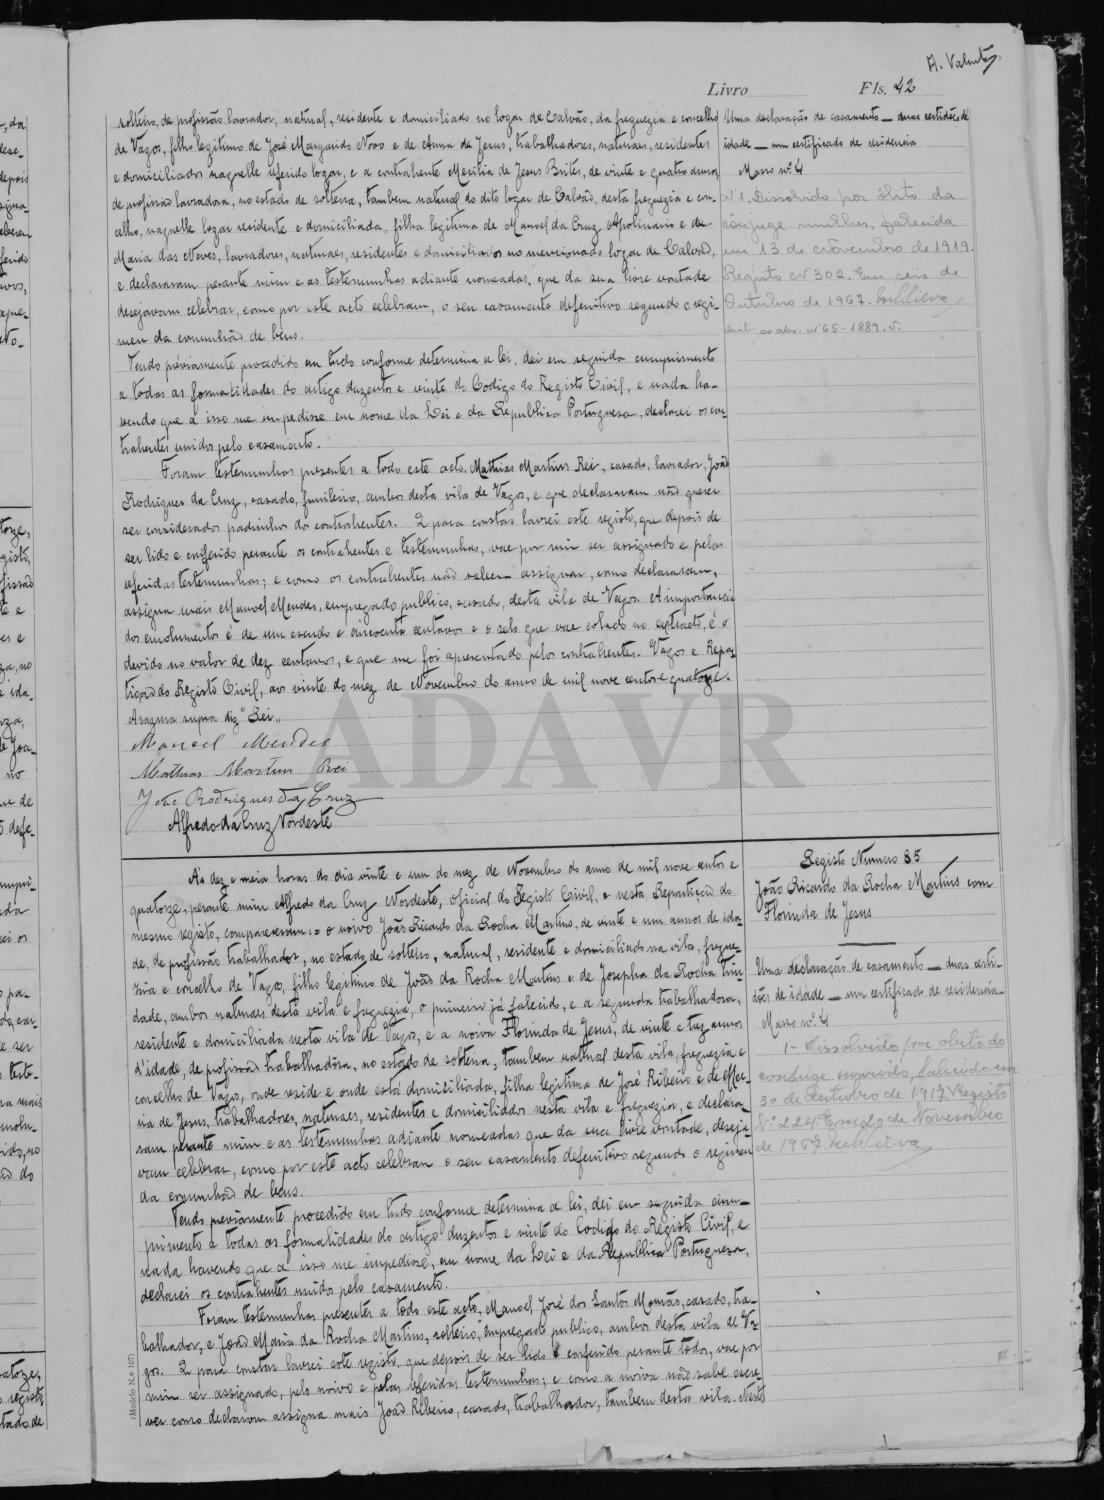 A. Valente
Livro Fls. 42
solteiro, de profissão lavrador, natural, residente e domiciliado no logar de Calvão, da freguezia e concelho
de Vagos, filho legitimo de José Margarido Novo e de Anna de Jesus, trabalhadores, naturaes, residentes
e domiciliados naquelle referido logar, e a contrahente Maria de Jesus Brites, de vinte e quatro annos,
de profissão lavradora, no estado de solteira, tambem natural do dito logar de Calvão, desta freguezia e con-
celho, naquelle logar residente e domiciliada, filha legitima de Manoel da Cruz Apolinario e de
Maria das Neves, lavradores, naturaes, residentes e domiciliados no mencionado logar de Calvão,
e declararam perante mim e as testemunhas adiante nomeadas, que da sua livre vontade
desejavam celebrar, como por este acto celebram, o seu casamento definitivo segundo o regi-
men da comunhão de bens.
Tendo préviamente procedido em tudo conforme determina a lei, dei em seguida cumprimento
a todas as formalidades do artigo duzentos e vinte do Codigo do Registo Civil, e nada ha-
vendo que a isso me impedisse em nome da Lei e da Republica Portuguesa, declarei os con-
trahentes unidos pelo casamento.
Foram testemunhas presentes a todo este acto, Mathias Martins Rei, casado, lavrador, João
Rodrigues da Cruz, casado, funileiro, ambos desta vila de Vagos, e que declararam não querer
ser considerados padrinhos dos contrahentes. E para constar lavrei este registo, que depois de
ser lido e conferido perante os contrahentes e testemunhas, vae por mim ser assignado e pelas
referidas testemunhas; e como os contrahentes não sabem assignar, como declararam,
assigna mais Manoel Mendes, empregado publico, casado, desta vila de Vagos. A importancia
dos emolumentos é de um escudo e cincoenta centavos e o selo que vae colado no extracto, é o
devido no valor de dez centavos, e que me foi apresentado pelos contrahentes. Vagos e Repar-
tição do Registo Civil, aos vinte do mez de Novembro do anno de mil nove centos e quatorze.
A rasura supra diz "Rei"
Manoel Mendes
Mathias Martins Rei
João Rodrigues da Cruz
Alfredo da Cruz Nordeste
Uma declaração de casamento — duas certidões de
idade — um certificado de residencia
Masso nº. 4
Nº 1. Dissolvido por óbito da
cônjuge mulher, falecida
em 13 de Novembro de 1919.
Registo Nº 302. Em seis de
Outubro de 1967.
ADAVR
Ás dez e meia horas do dia vinte e um do mez de Novembro do anno de mil nove centos e
quatorze, perante mim Alfredo da Cruz Nordeste, oficial do Registo Civil, e nesta Repartição do
mesmo registo, compareceram: = o noivo João Ricardo da Rocha Martins, de vinte e um annos de ida-
de, de profissão trabalhador, no estado de solteiro, natural, residente e domiciliado na vila, fregue-
zia e concelho de Vagos, filho legitimo de João da Rocha Martins e de Josepha da Rocha Trin-
dade, ambos naturaes desta vila e freguezia, o primeiro já falecido, e a segunda trabalhadora,
residente e domiciliada nesta vila de Vagos, e a noiva Florinda de Jesus, de vinte e trez annos
d'idade, de profissão trabalhadora, no estado de solteira, tambem natural desta vila, freguezia e
concelho de Vagos, onde reside e onde está domiciliada, filha legitima de José Ribeiro e de Effer-
nia de Jesus, trabalhadores, naturaes, residentes e domiciliados nesta vila e freguezia, e declara-
ram perante mim e as testemunhas adiante nomeadas que da sua livre vontade, deseja-
vam celebrar, como por este acto celebram o seu casamento definitivo segundo o regimen
da comunhão de bens.
Tendo previamente procedido em tudo conforme determina a lei, dei em seguida cum-
primento a todas as formalidades do artigo duzentos e vinte do Codigo do Registo Civil, e
nada havendo que a isso me impedisse, em nome da Lei e da Republica Portuguesa,
declarei os contrahentes unidos pelo casamento.
Foram testemunhas presentes a todo este acto, Manoel José dos Santos Mamão, casado, tra-
balhador, e João Maria da Rocha Martins, solteiro, empregado publico, ambos desta vila de Va-
gos. E para constar lavrei este registo, que depois de ser lido e conferido perante todos, vae por
mim ser assignado, pelo noivo e pelas referidas testemunhas; e como a noiva não sabe escre-
ver como declarou assigna mais João Ribeiro, casado, trabalhador, tambem desta vila. Nesta
Registo Numero 85
João Ricardo da Rocha Martins com
Florinda de Jesus
Uma declaração de casamento — duas certi-
dões de idade — um certificado de residencia
Masso nº. 4
1 - Dissolvido por óbito do
conjuge marido, falecido em
30 de Outubro de 1917. Registo
Nº 224. de Novembro
de 1967
(Modelo N.º 107)